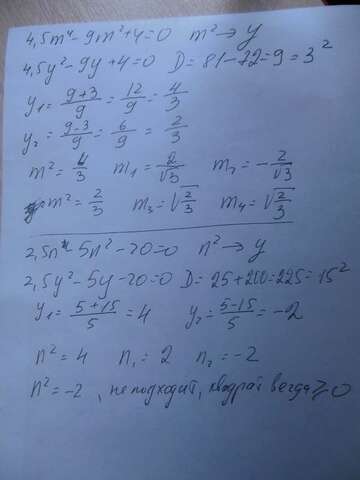 4,5m⁴-9m²+4=0 m²→y
4,5y²-9y+4=0 D=81-72=9=3²
y₁=(9+3)/9=12/9=4/3
y₂=(9-3)/9=6/9=2/3
m²=4/3 m₁=2/√3 m₂=-2/√3
m²=2/3 m₃=√(2/3) m₄=√(2/3)
2,5n⁴-5n²-20=0 n²→y
2,5y²-5y-20=0 D=25+200=225=15²
y₁=(5+15)/5=4 y₂=(5-15)/5=-2
n²=4 n₁=2 n₂=-2
n²=-2, не подходит, квадрат всегда ≥0